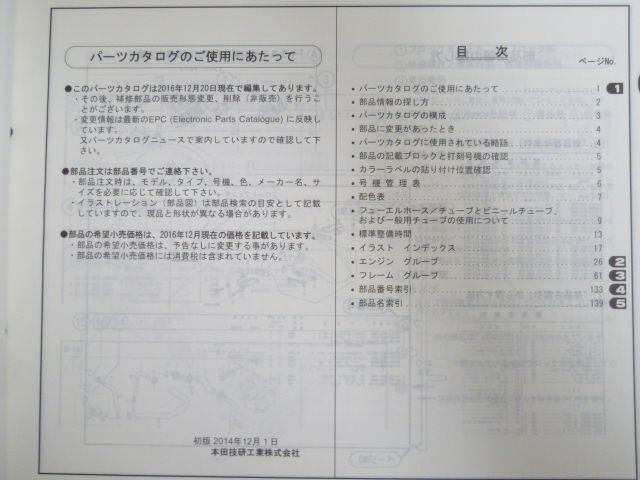 パーツカタログのご使用にあたって
●このパーツカタログは2016年12月20日現在で編集してあります。
・その後、補修部品の販売形態変更、削除（非販売）を行うことがございます。
・変更情報は最新のEPC (Electronic Parts Catalogue) に反映しています。
又パーツカタログニュースで案内していますので確認して下さい。
●部品注文は部品番号でご連絡下さい。
・部品注文時は、モデル、タイプ、号機、色、メーカー名、サイズを必要に応じて確認して下さい。
・イラストレーション（部品図）は部品検索の目安として記載していますので、現品と形状が異なる場合があります。
●部品の希望小売価格は、2016年12月現在の価格を記載しています。
・部品の希望小売価格は、予告なしに変更する事があります。
・部品の希望小売価格には消費税は含まれていません。
初版 2014年12月1日
本田技研工業株式会社
目 次
ページNo.
・パーツカタログのご使用にあたって 1 1
・部品情報の探し方 2
・パーツカタログの構成 3
・部品に変更があったとき 4
・パーツカタログに使用されている略語 4
・部品の記載ブロックと打刻号機の確認 5
・カラーラベルの貼り付け位置確認 5
・号機管理表 6
・配色表 7
・フューエルホース／チューブとビニールチューブ、
および一般用チューブの使用について 9
・標準整備時間 13
・イラスト インデックス 17
・エンジン グループ 26 2
・フレーム グループ 61 3
・部品番号索引 133 4
・部品名索引 139 5